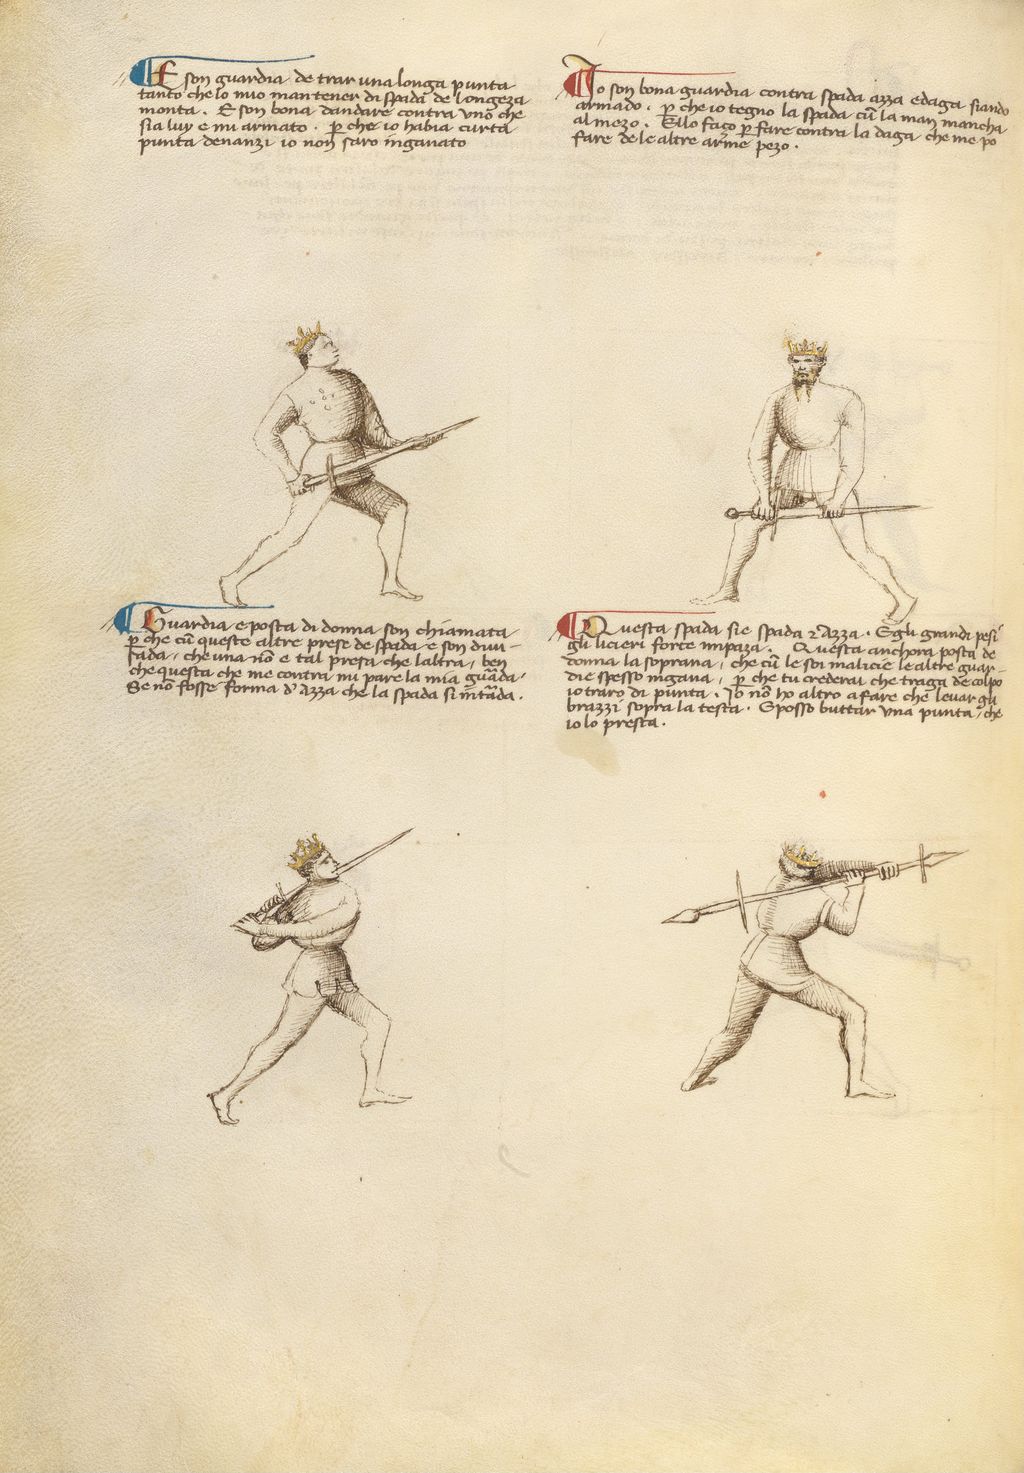 E son guardia de trar una longa punta
tanto che lo mio mantener di spada de longeza
monta. E son bona d'andare contra uno che
sia luy e mi armato. p̲ che io habia curta
punta denanzi io non saro inganato
Io son bona guardia contra spada azza e daga siando
armado. p̲ che io tegno la spada cū la man mancha
al mezo. Ello faço p̲ fare contra la daga che me po
fare de le altre arme pezo.
Guardia e posta di donna son chiamata
p̲ che cū queste altre prese de spada e son divi-
sada, che una nō e tal presa che l altra, ben
che questa che me contra mi pare la mia guāda.
Se nō fosse forma d'Azza che la spada si intēda.
Questa spada sie spada ⁊ Azza. E gli grandi pesi
gli licieri forte impaza. Questa anchora posta de
donna la soprana, che cū le soi malicie le altre guar-
die spesso ingana, p̲ che tu crederai che traga de colpo
io traro di punta. Io nō ho altro a fare che levar gli
brazzi sopra la testa. E posso buttar una punta, che
io lo presta.